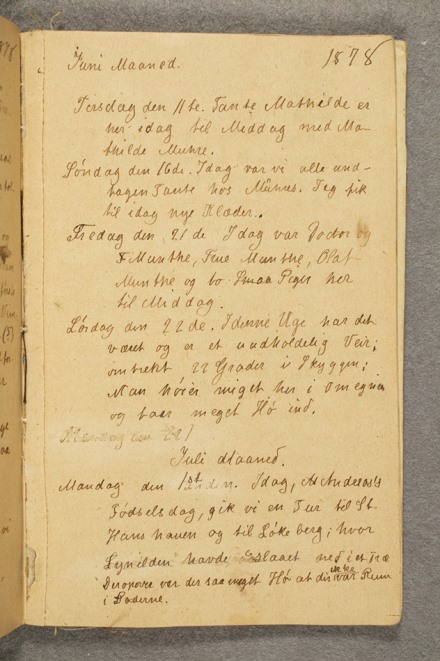 Juni Maaned. 1878
Tirsdag den 11te. Tante Mathilde er
her idag til Middag med Ma-
thilde Munthe.
Søndag den 16de. Idag var vi alle und-
tagen Tante hos Munthes. Jeg fik
til idag nye Klæder.
Fredag den 21de Idag var Doctor og
F Munthe, Tine Munthe, Olaf
Munthe og to Smaa Piger her
til Middag.
Lørdag den 22de. I denne Uge har det
været og er et uudholdelig Veir;
omtrent 22 Grader i Skyggen;
Man høier meget her i Omegnen
og faar meget Hø ind.
Mandag den
Juli Maaned.
Mandag den 1st. Idag, At Anders's
Fødselsdag, gik vi en Tur til St.
Hans hauen og til Løkeberg; hvor
Lynilden havde slaaet ned i et Træ
Deroppe var der saa meget Hø at der ikke var Rum
i Laderne.